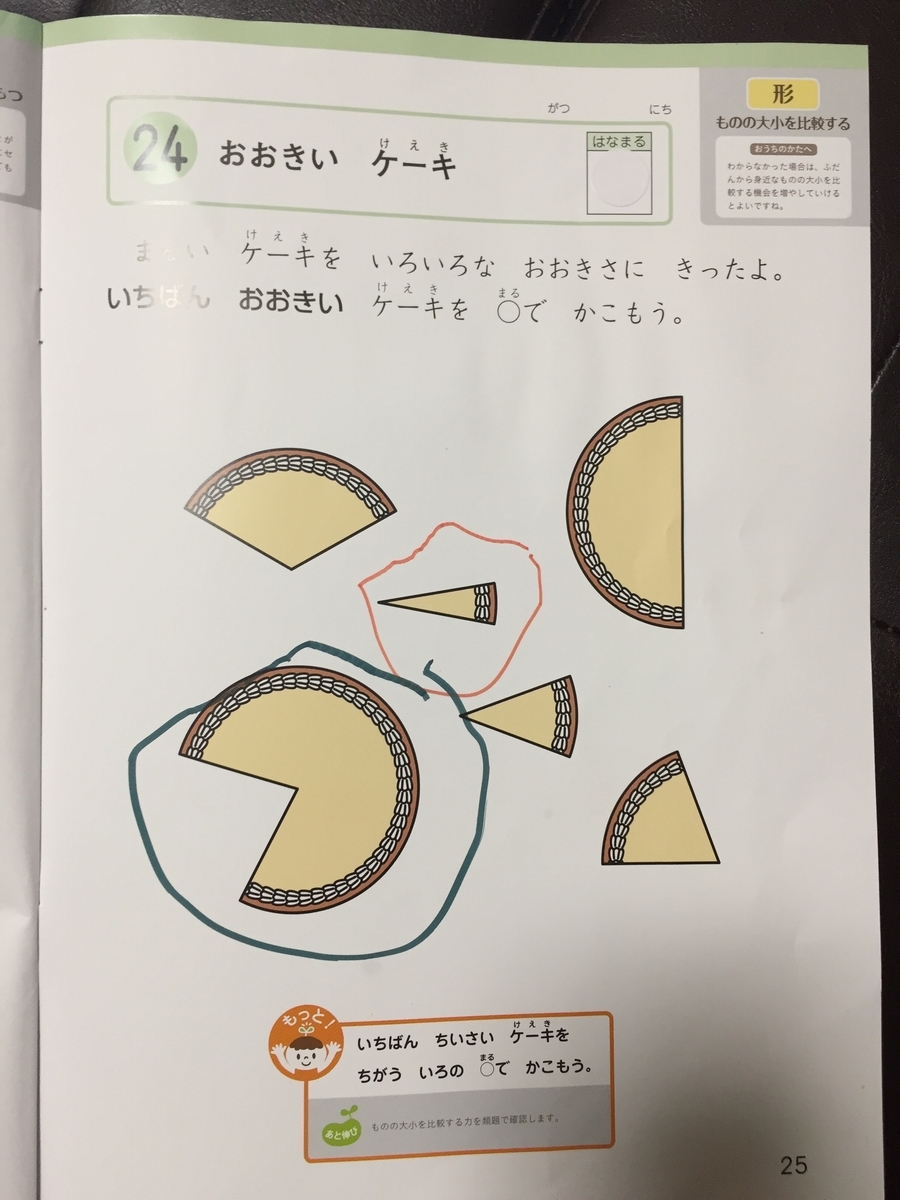 がつ にち
24 おおきい ケーキ
けえき
はなまる
形
ものの大小を比較する
おうちのかたへ
わからなかった場合は、ふだ
んから身近なものの大小を比
較する機会を増やしていける
とよいですね。
けえき
い ケーキを いろいろな おおきさに きったよ。
けえき まる
いちばん おおきい ケーキを ○で かこもう。
もっと!
けえき
いちばん ちいさい ケーキを
まる
ちがう いろの ○で かこもう。
あと伸び
ものの大小を比較する力を類題で確認します。
25